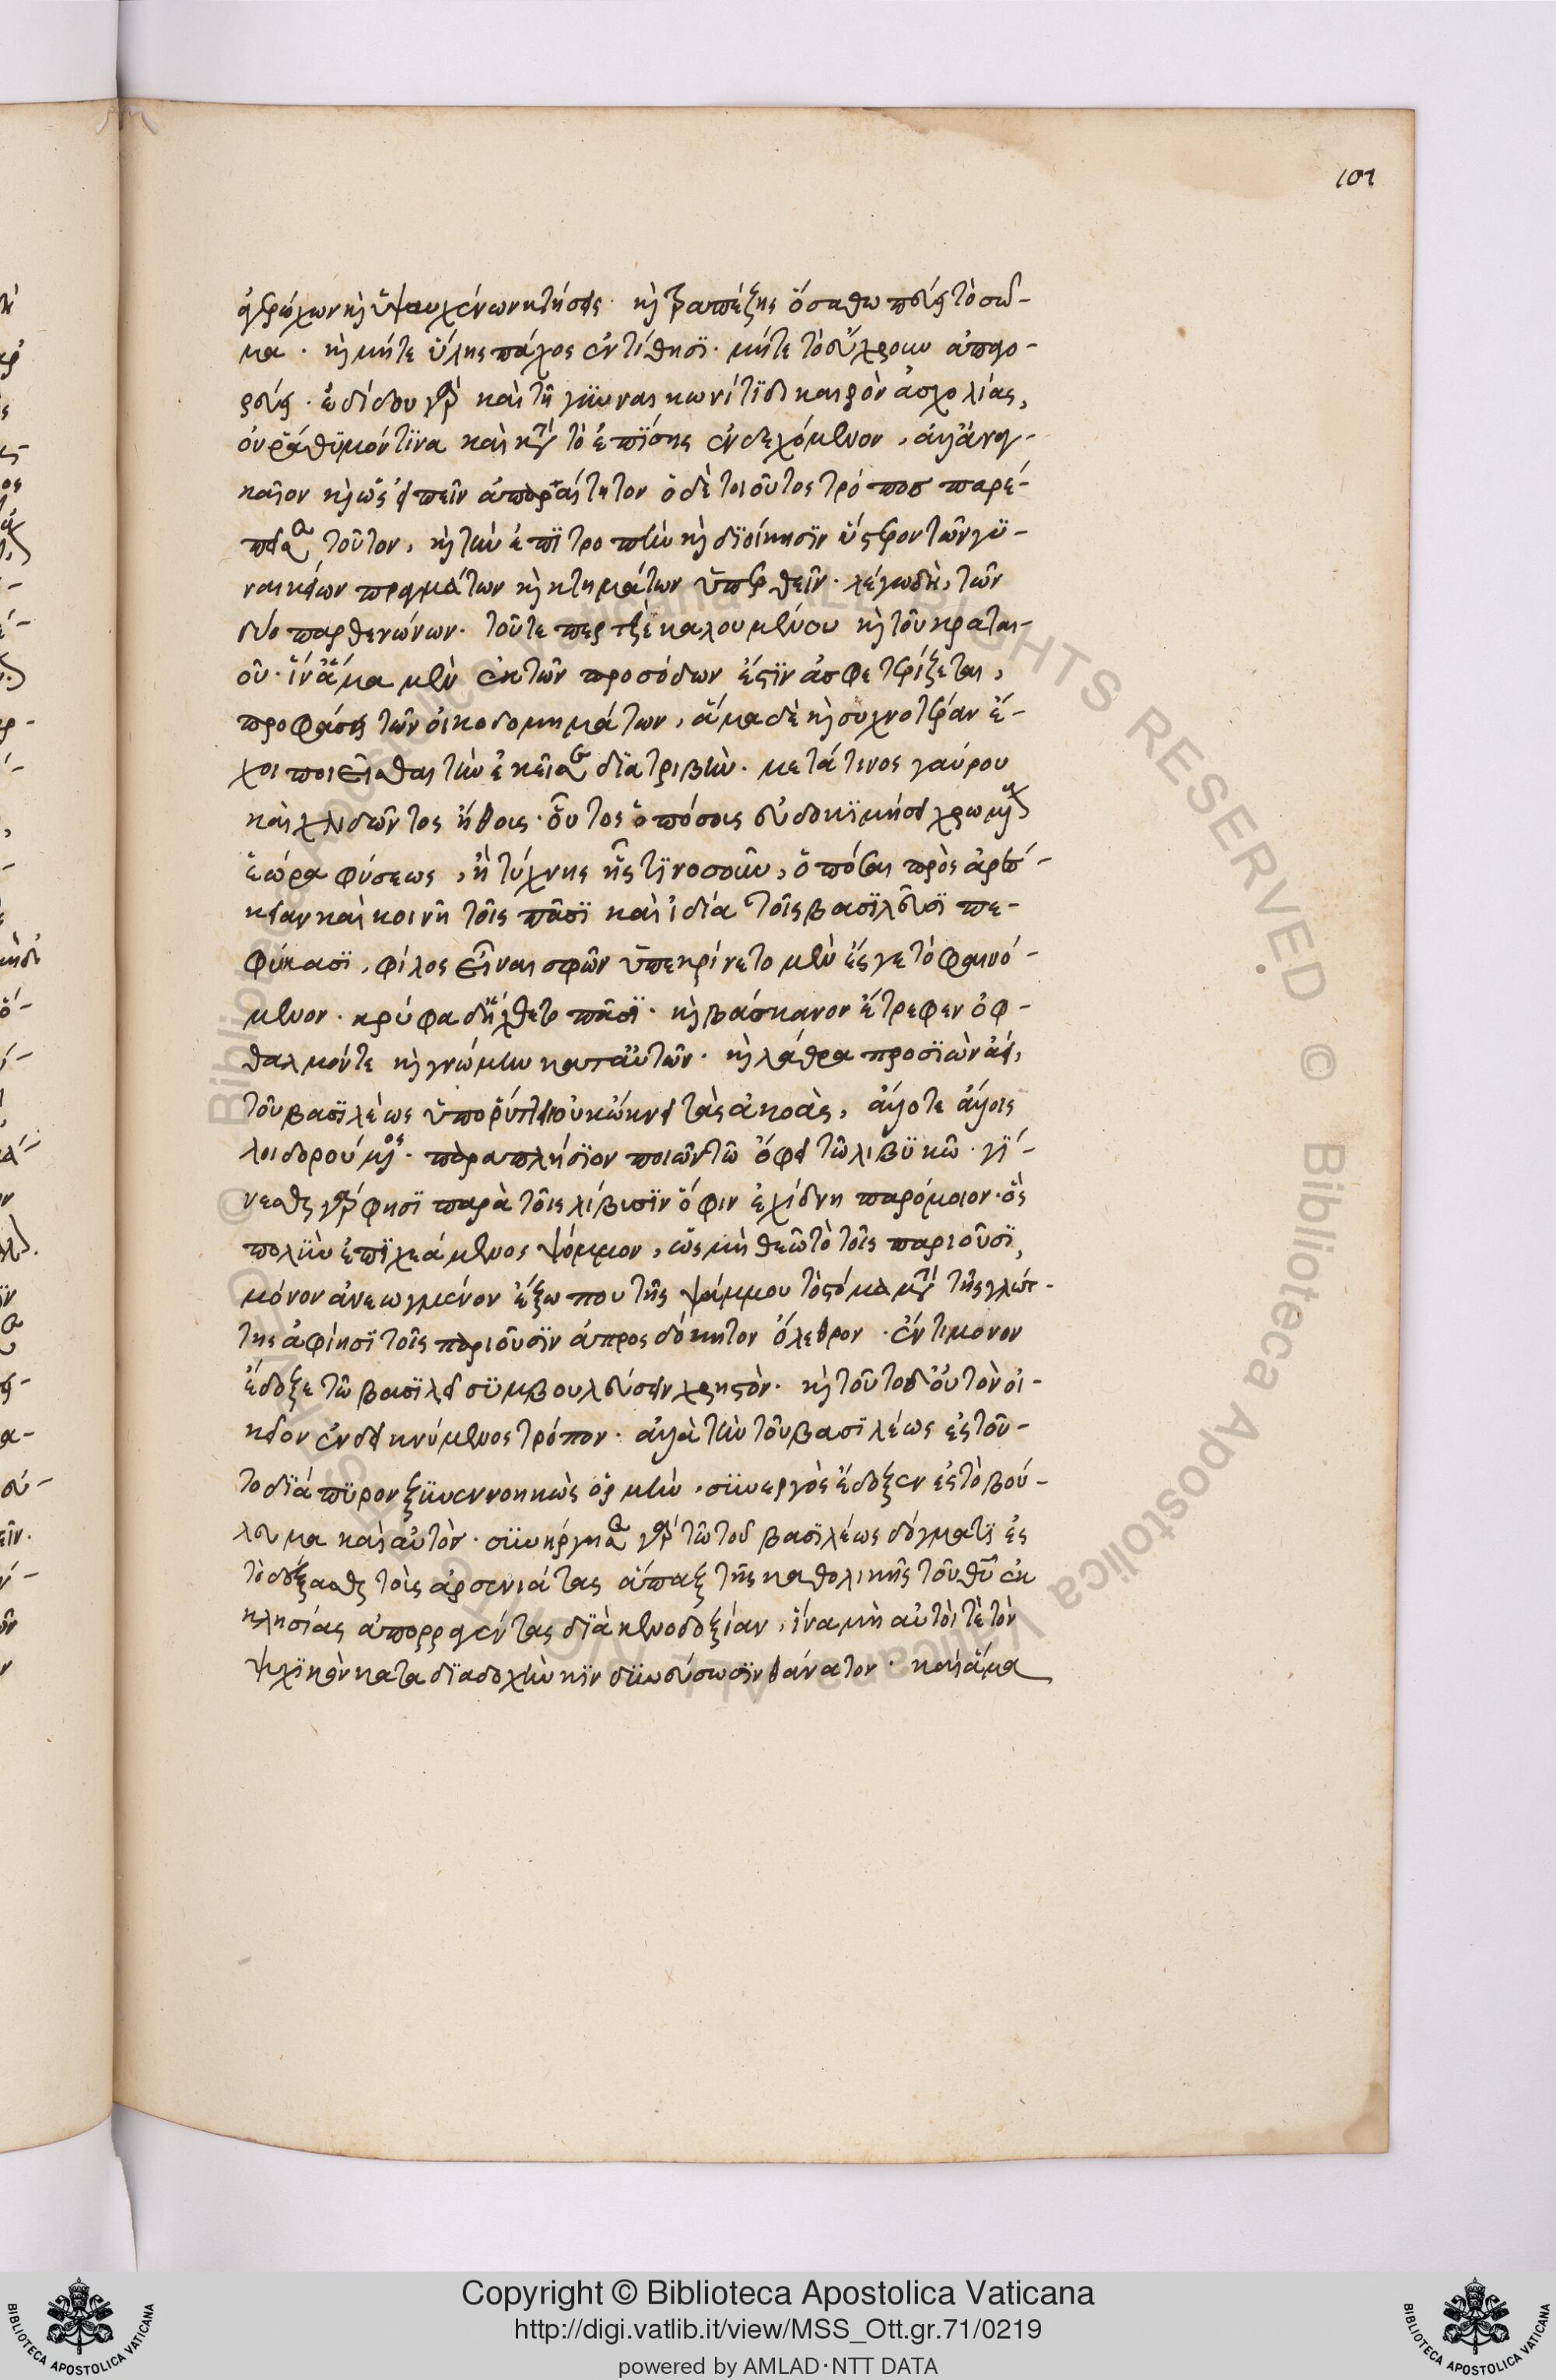 101
καὶ τραπέζης ὅσα θω πεύει τὸ σῶ-
μα · καὶ μήτε ὕλης πάχος ἐντίθησι · μήτε τὸ εὔχρουν ἀπαγο-
ρεύει · ἐδίδου γὰρ καὶ τῇ γυναικωνίτιδι καιρὸν ἀσχολίας,
οὐ ῥάθυμόν τινα καὶ κατὰ τὸ ἐπίσης ἐνδεχόμενον, ἀλλ' ἀναγ-
καῖον καὶ ὡς εἰπεῖν ἀπαραίτητον ὁ δὲ τοιοῦτος τρόπος παρέ-
πεισε τοῦτον, καὶ τὴν ἐπιτροπὴν καὶ διοίκησιν ὕστερον τῶν γυ-
ναικείων πραγμάτων καὶ κτημάτων ὑπελθεῖν · λέγω δὴ, τῶν
δύο παρθενώνων · τοῦ τε περτζὲ καλουμένου καὶ τοῦ κραται-
οῦ · ἵν' ἅμα μὲν ἐκ τῶν προσόδων ἔστιν ἃ σφετερίζεται,
προφάσει τῶν οἰκοδομημάτων, ἅμα δὲ καὶ συχνοτέραν ἔ-
χοι ποιεῖσθαι τὴν ἐκεῖσε διατριβὴν · μετά τινος γαύρου
καὶ χλιδῶντος ἤθους · οὗτος ὁπόσοις εὐδοκιμήσει χρωμένους
ἑώρα φύσεως, ἢ τύχης ἧς τινοσοῦν, ὁπόσαι πρὸς ἀρέ-
σκειαν καὶ κοινῇ τοῖς πᾶσι καὶ ἰδίᾳ τοῖς βασιλεῦσι πε-
φύκασι, φίλος εἶναι σφῶν ὑπεκρίνετο μὲν ἔς γε τὸ φαινό-
μενον · κρύφα δ' ἤχθετο πᾶσι · καὶ βάσκανον ἔτρεφεν ὀφ-
θαλμόν τε καὶ γνώμην κατ' αὐτῶν · καὶ λάθρα προσιὼν ἀεὶ,
τοῦ βασιλέως ὑπορύττειν οὐκ ὤκνει τὰς ἀκοὰς, ἄλλοτε ἄλλοις
λοιδορούμενος · παραπλήσιον ποιῶν τῷ ὄφει τῷ λιβυκῷ · γί-
νεσθαι γάρ φησι παρὰ τοῖς λίβυσιν ὄφιν ἐχίδνῃ παρόμοιον · ὃς
πολλὴν ἐπιχεάμενος ψάμμον, ὡς μὴ θεῷτο τοῖς παριοῦσι,
μόνον ἀνεωγμένον ἔξω που τῆς ψάμμου τὸ στόμα μετὰ τῆς γλώτ-
της ἀφίησι τοῖς παριοῦσιν ἀπροσδόκητον ὄλεθρον · ἔν τι μόνον
ἔδοξε τῷ βασιλεῖ συμβουλεύσειν χρηστὸν · καὶ τοῦτο δ' οὐ τὸν οἰ-
κεῖον ἐνδεικνύμενος τρόπον · ἀλλὰ τὴν τοῦ βασιλέως ἐς τοῦ-
το διάπυρον ξυνεννοηκὼς ὁρμὴν, συνεργὸς ἔδοξεν ἐς τὸ βού-
λευμα καὶ αὐτὸν · συνήργησε γὰρ τῷ τοῦ βασιλέως δόγματι ἐς
τὸ δέξασθαι τοὺς ἀρσενιάτας ἅπαξ τῆς καθολικῆς τοῦ θυ ἐκ
κλησίας ἀπορραγέντας διὰ κενοδοξίαν, ἵνα μὴ αὐτοί τε τὸν
ψυχικὸν κατὰ διαδοχὴν κινδυνεύσωσιν θάνατον · καὶ ἅμα
Copyright © Biblioteca Apostolica Vaticana
http://digi.vatlib.it/view/MSS_Ott.gr.71/0219
powered by AMLAD·NTT DATA
BIBLIOTECA APOSTOLICA VATICANA
BIBLIOTECA APOSTOLICA VATICANA